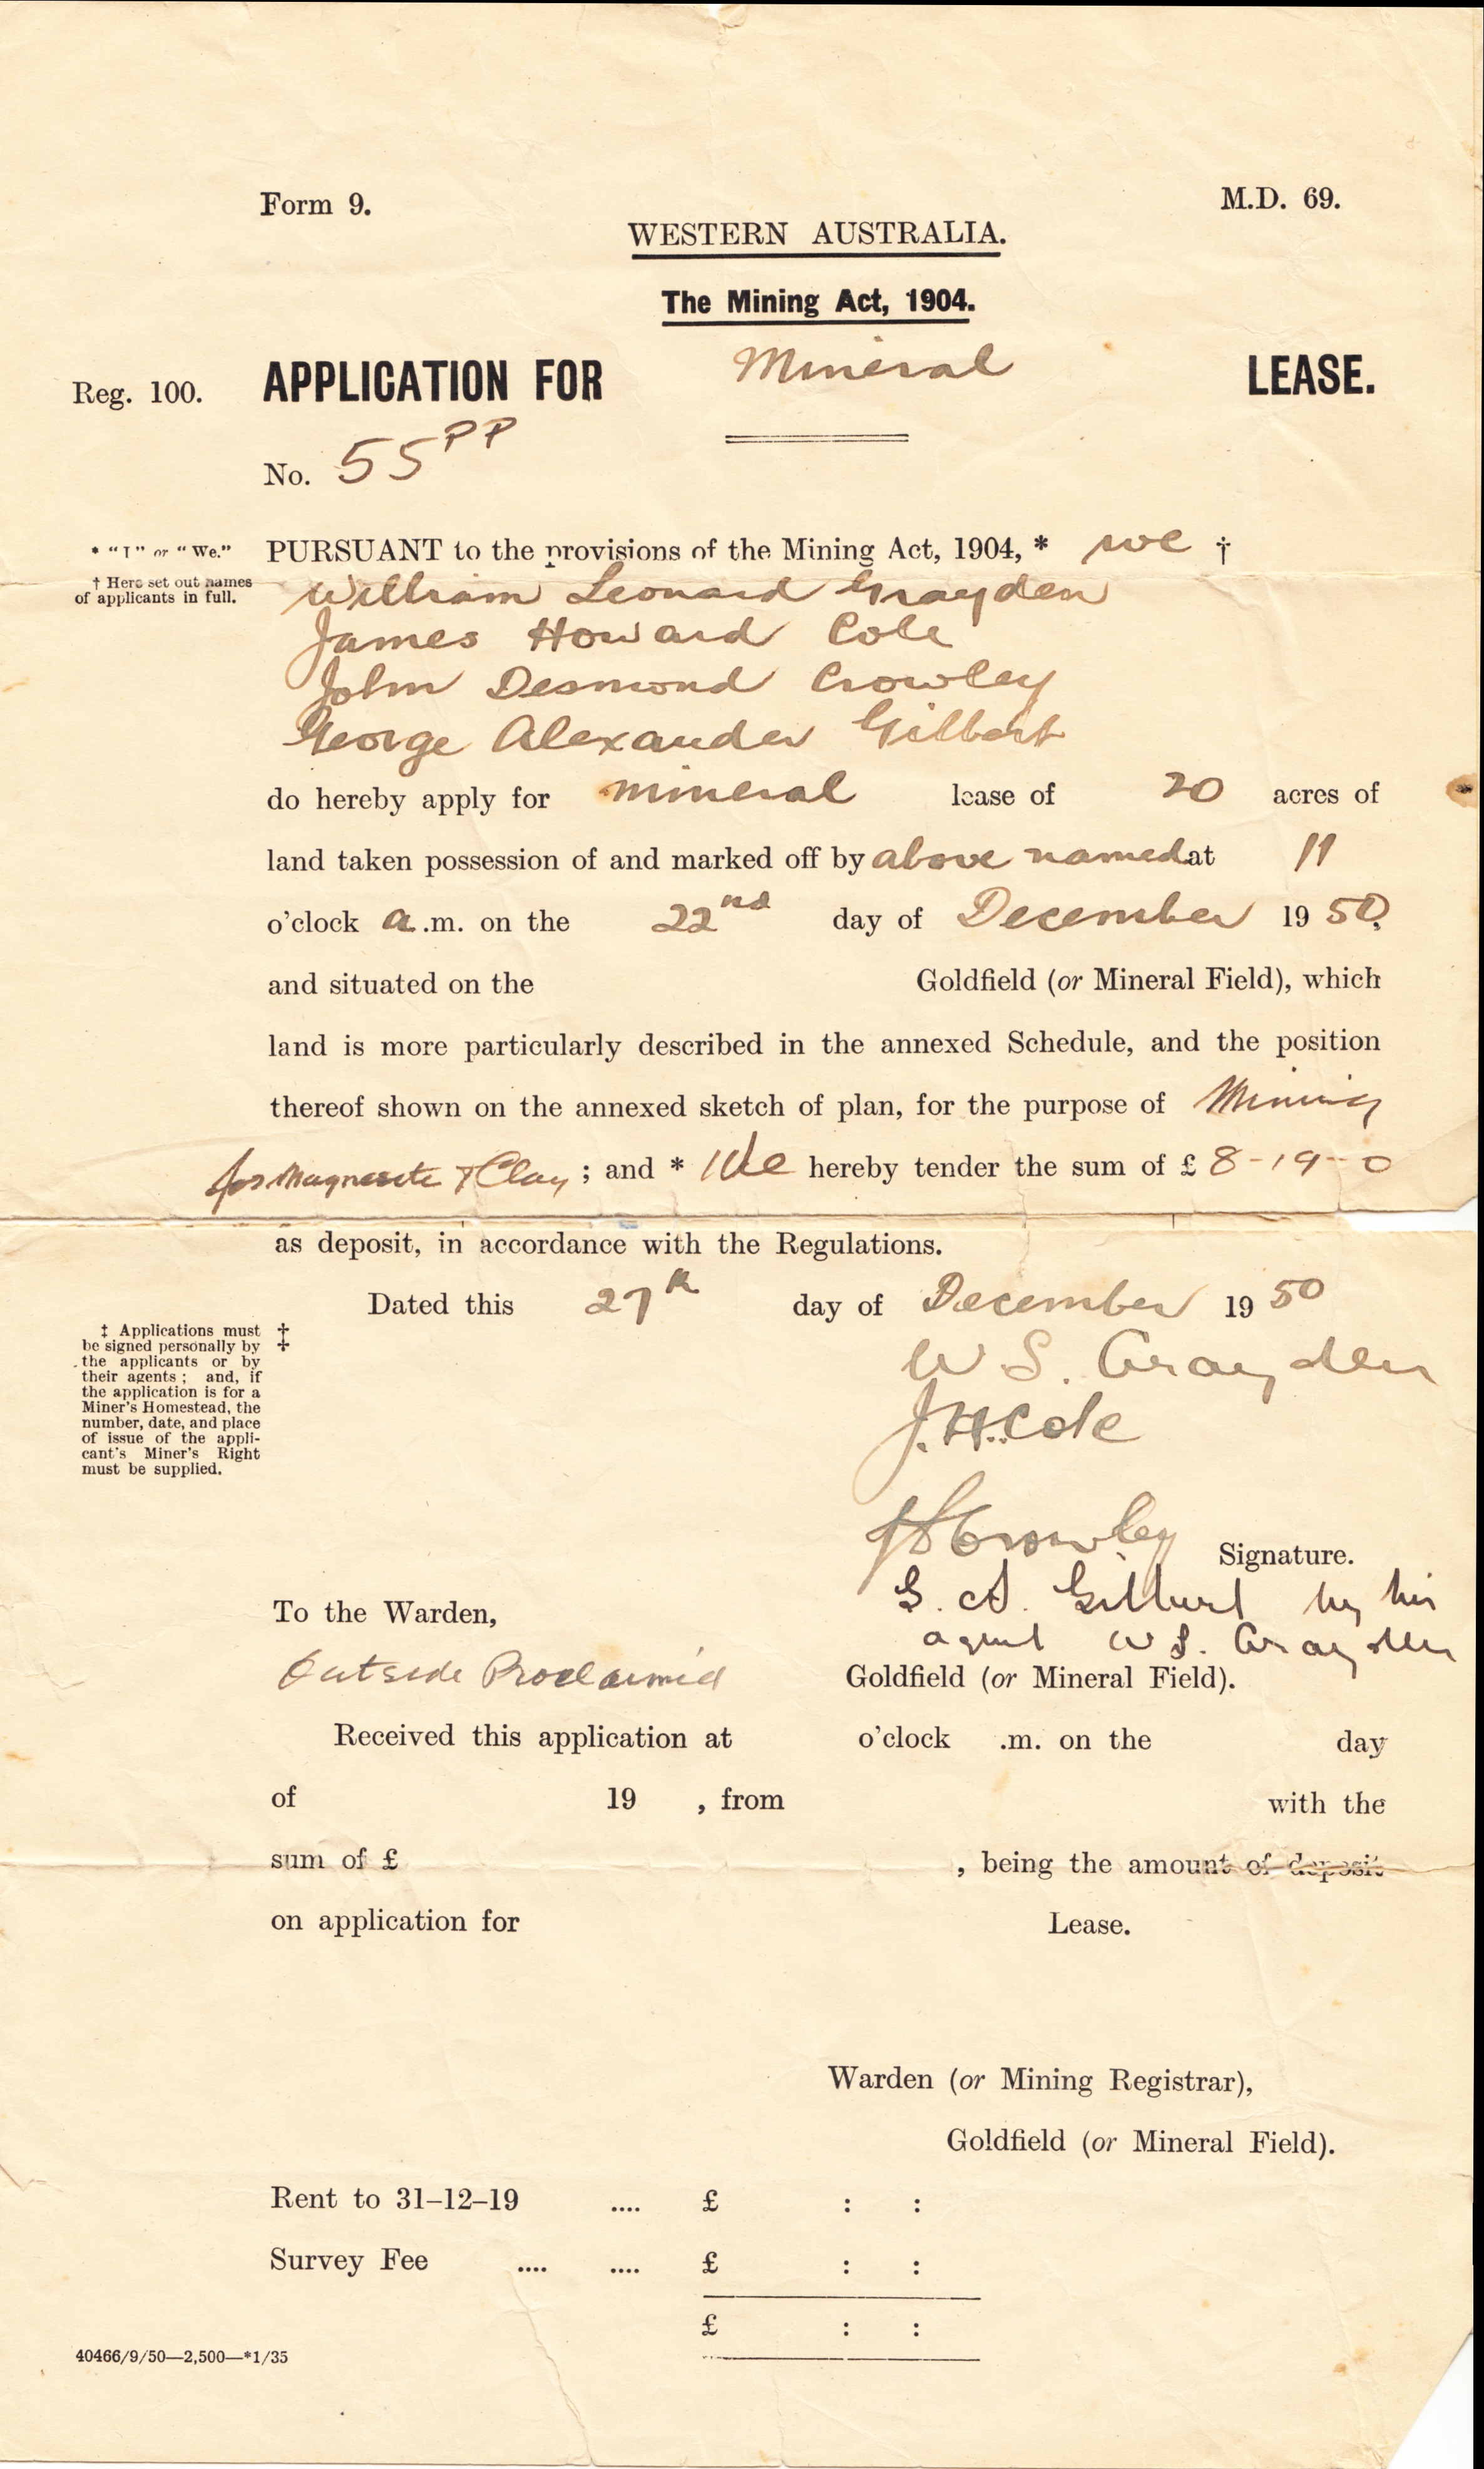 Form 9.
M.D. 69.
WESTERN AUSTRALIA.
The Mining Act, 1904.
Reg. 100. APPLICATION FOR Mineral LEASE.
No. 55PP
* "I" or "We." PURSUANT to the provisions of the Mining Act, 1904, * we †
† Here set out names
of applicants in full.
William Leonard Grayden
James Howard Cole
John Desmond Crowley
George Alexander Gilbert
do hereby apply for mineral lease of 20 acres of
land taken possession of and marked off by above named at 11
o'clock a.m. on the 22nd day of December 1950,
and situated on the Goldfield (or Mineral Field), which
land is more particularly described in the annexed Schedule, and the position
thereof shown on the annexed sketch of plan, for the purpose of Mining
for Magnesite & Clay ; and * We hereby tender the sum of £ 8-19-0
as deposit, in accordance with the Regulations.
Dated this 27th day of December 1950
‡ Applications must ‡
be signed personally by
the applicants or by
their agents ; and, if
the application is for a
Miner's Homestead, the
number, date, and place
of issue of the appli-
cant's Miner's Right
must be supplied.
W. L. Grayden
J. H. Cole
JD Crowley
Signature.
G. A. Gilbert by his
agent W L. Grayden
To the Warden,
Outside Proclaimed Goldfield (or Mineral Field).
Received this application at o'clock .m. on the day
of 19 , from with the
sum of £ , being the amount of deposit
on application for Lease.
Warden (or Mining Registrar),
Goldfield (or Mineral Field).
Rent to 31–12–19 .... £ : :
Survey Fee .... .... £ : :
£ : :
40466/9/50—2,500—*1/35